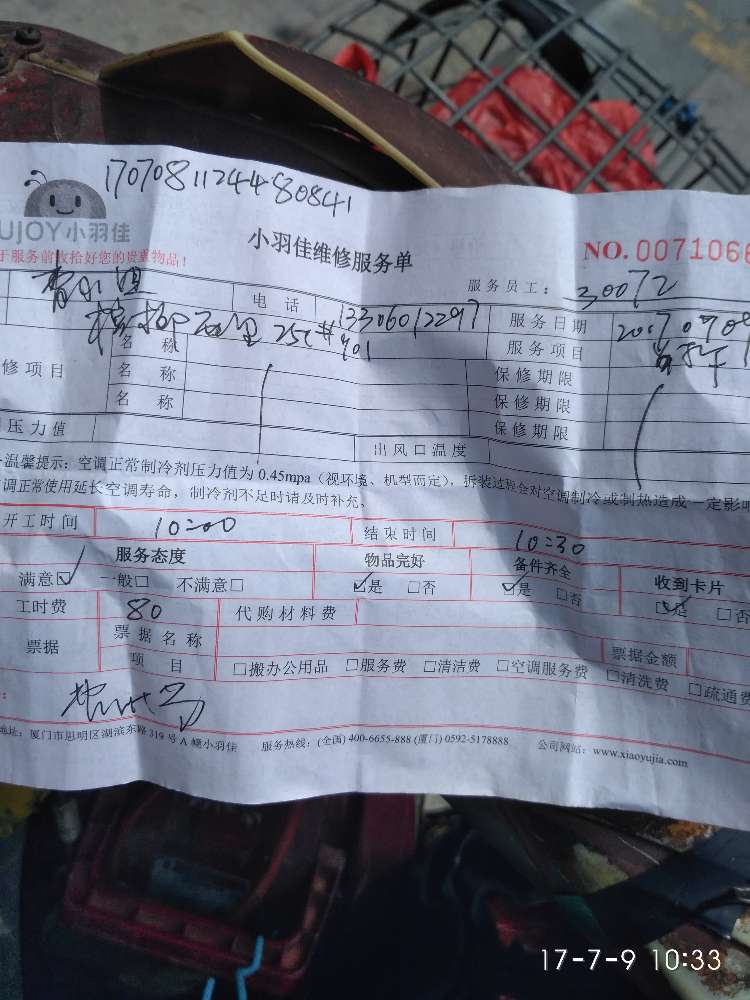 17070811244480841
UJOY小羽佳
小羽佳维修服务单
NO.0071066
于服务前收拾好您的贵重物品!
服务员工: 30072
小姐 电话 13306012297 服务日期
25 401
名称 服务项目
修项目 名称 保修期限
名称 保修期限
保修期限
压力值 出风口温度
温馨提示: 空调正常制冷剂压力值为0.45mpa (视环境、机型而定), 拆装过程会对空调制冷或制热造成一定影响
调正常使用延长空调寿命, 制冷剂不足时请及时补充。
开工时间 10:00 结束时间 10:30
服务态度 物品完好 备件齐全 收到卡片
满意☑ 一般□ 不满意□ ☑是 □否 ☑是 □否 ☑是 □否
工时费 80 代购材料费
票据 票据名称 票据金额
项目 □搬办公用品 □服务费 □清洁费 □空调服务费 □清洗费 □疏通费
地址: 厦门市思明区湖滨东路319号A幢小羽佳 服务热线: (全国) 400-6655-888 (厦门) 0592-5178888 公司网站: www.xiaoyujia.com
17-7-9 10:33